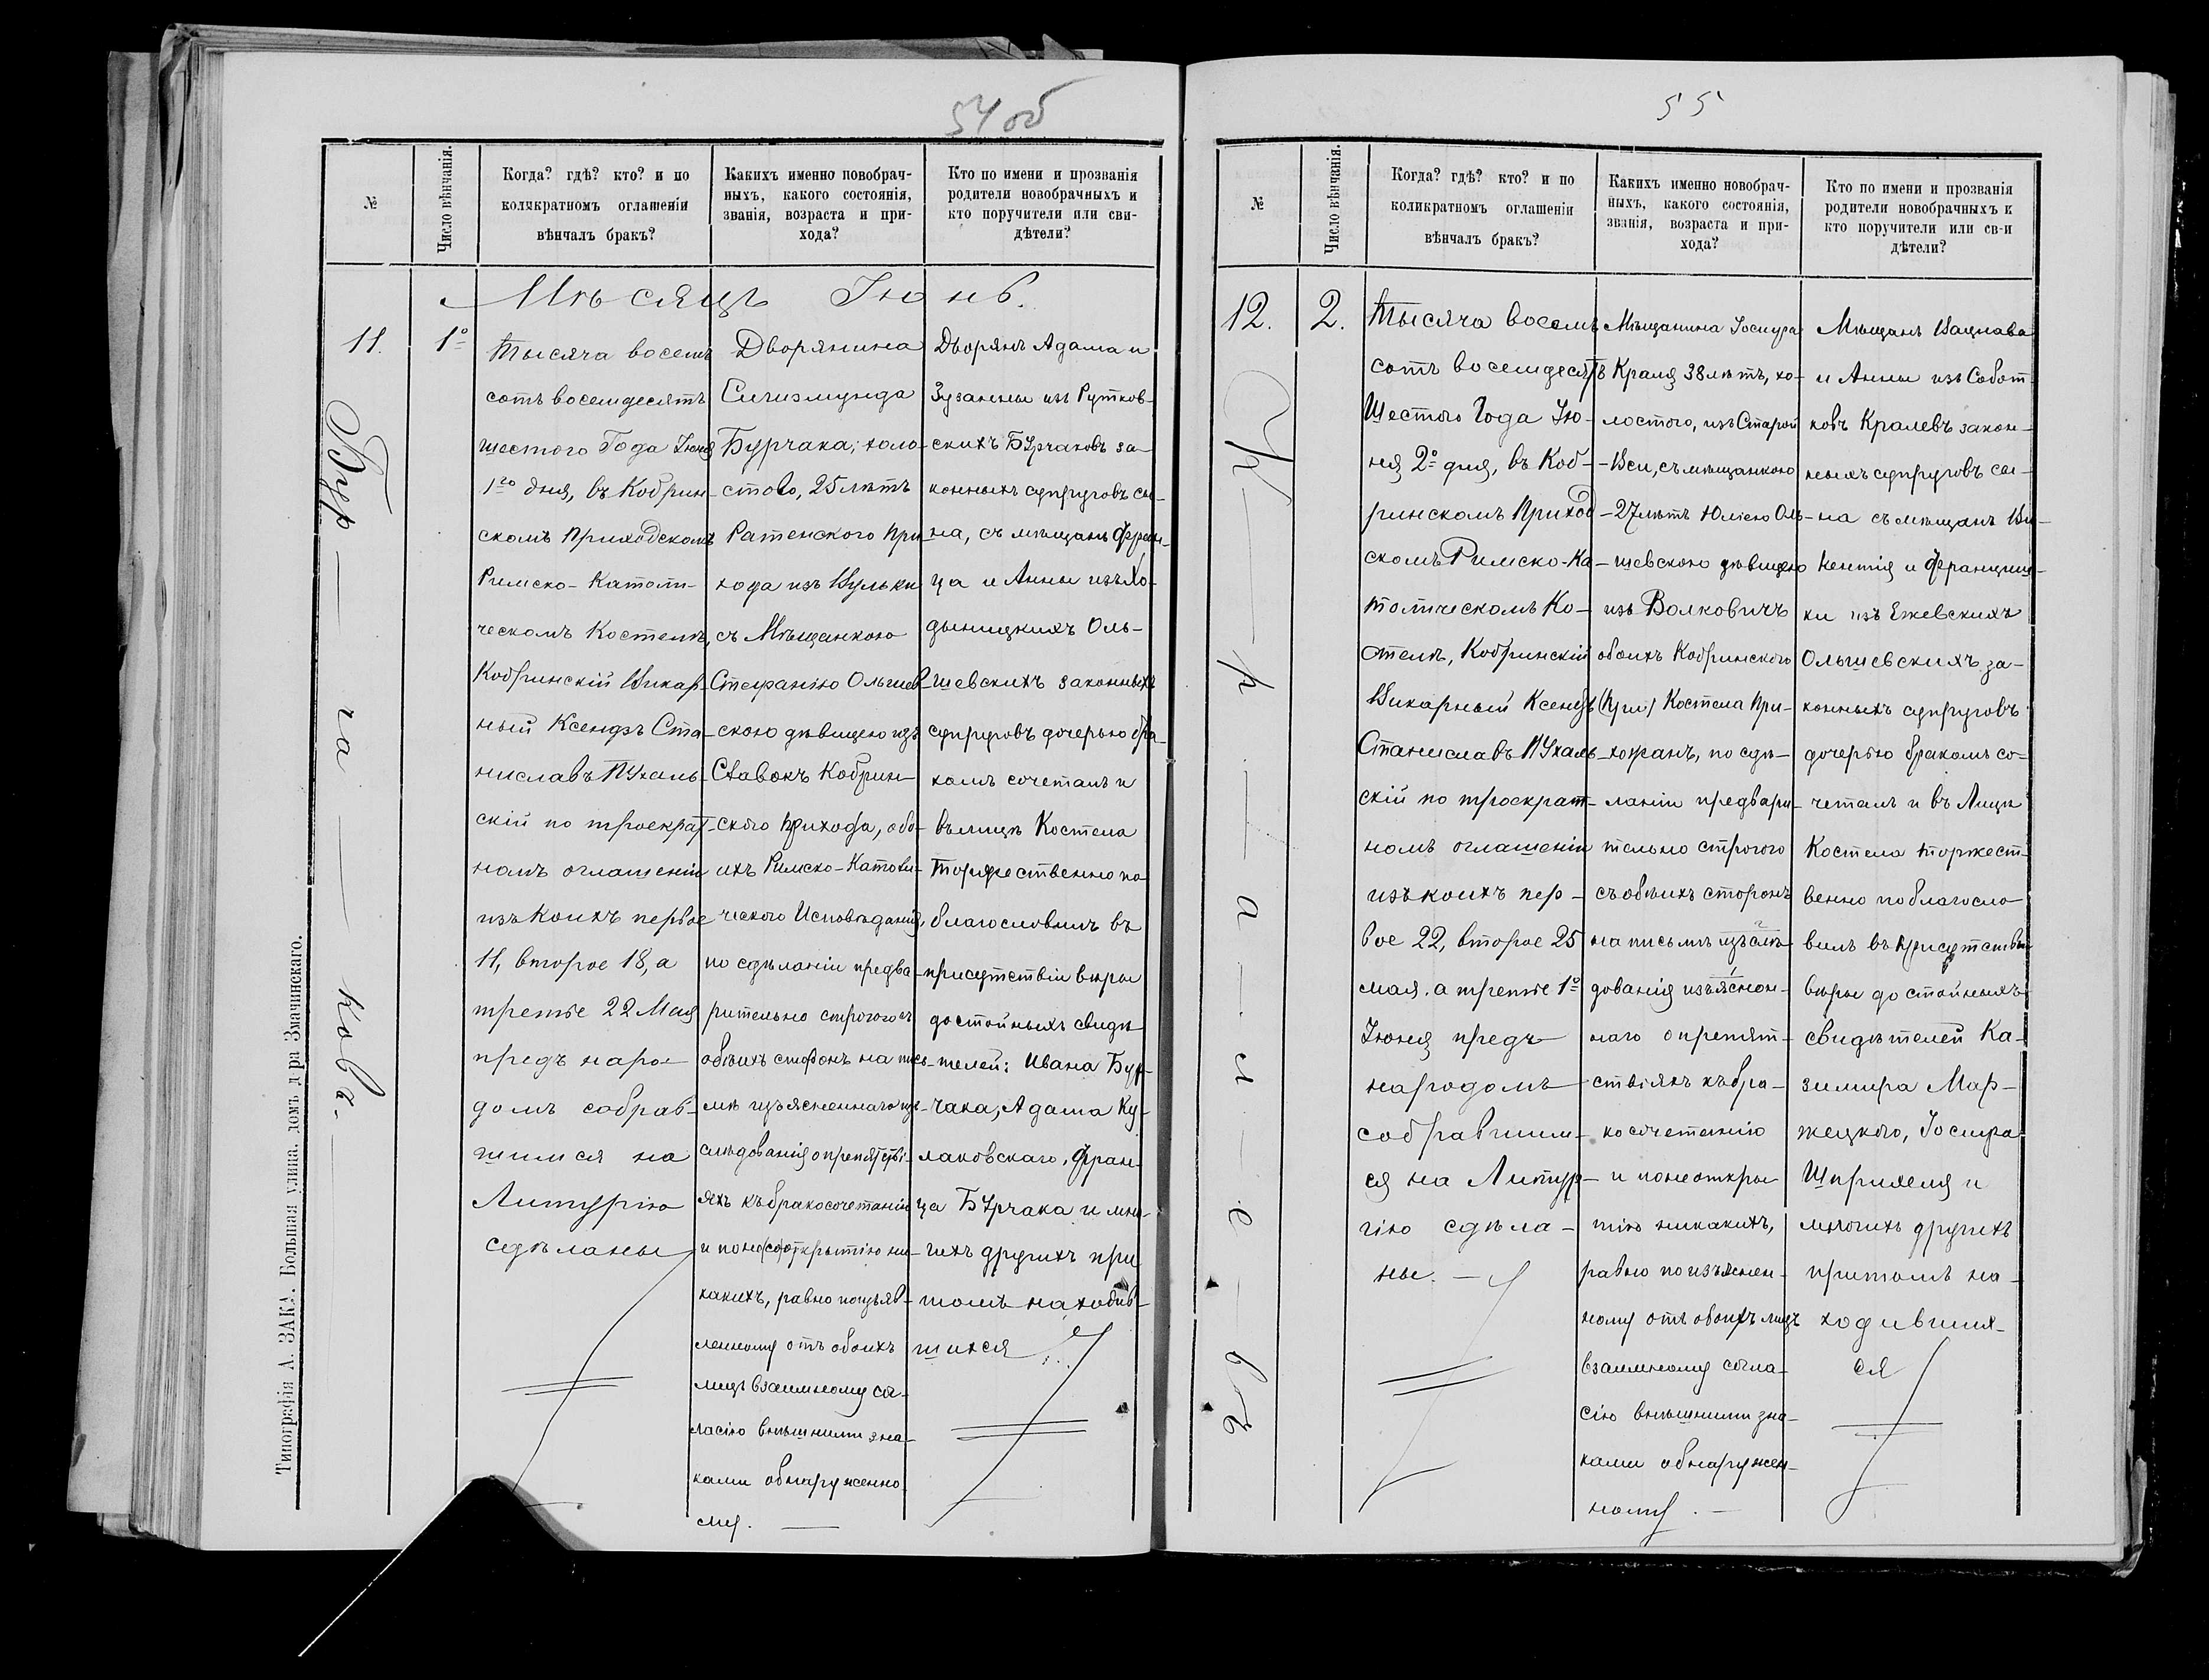 54 об
№
Число вѣнчанія.
Когда? гдѣ? кто? и по
коликратномъ оглашеніи
вѣнчалъ бракъ?
Какихъ именно новобрач-
ныхъ, какого состоянія,
званія, возраста и при-
хода?
Кто по имени и прозванія
родители новобрачныхъ и
кто поручители или сви-
дѣтели?
Мѣсяцъ Іюнь.
11.
1о
Бур — ча — кова.
Тысяча восемь
сотъ восемдесятъ
шестого Года Іюня
1го дня, въ Кобрин-
скомъ Приходскомъ
Римско-Католи-
ческомъ Костелѣ,
Кобринскій Викар-
ный Ксендзъ Ста-
ниславъ Пухаль-
скій по троекрат-
номъ оглашеніи
изъ коихъ первое
11, второе 18, а
третье 22 Мая
предъ наро-
домъ собрав-
шимся на
Литургію
сдѣланы
Дворянина
Сигизмунда
Бурчака, холо-
стого, 25 лѣтъ
Ратенского При
хода изъ Вульки
съ Мѣщанкою
Стефанію Ольшев-
скою дѣвицею изъ
Ставокъ Кобрин-
ского прихода, обо-
ихъ Римско-Католи-
ческого Исповѣданія,
по сдѣланіи предва-
рительно строгого съ
обѣихъ сторонъ на пись-
мѣ изъясненнаго из-
слѣдованія о препятстві-
яхъ къ бракосочетанію
и по не(со)открытію ни-
какихъ, равно по изъяв-
ленному отъ обоихъ
лицъ взаимному со-
гласію внѣшними зна-
ками обнаруженно
му. —
Дворянъ Адама и
Зузанны изъ Рутков-
скихъ Бурчаковъ за-
конныхъ супруговъ сы-
на, съ мѣщанъ Фран-
ца и Анны изъ Хо-
дыницкихъ Оль-
шевскихъ законныхъ
супруговъ дочерью бра-
комъ сочеталъ и
въ лицѣ Костела
Торжественно по
благословилъ въ
присутствіи вѣры
достойныхъ свидѣ
телей: Ивана Бур-
чака, Адама Ку-
лаковскаго, Фран-
ца Бурчака и мно-
гихъ другихъ при
томъ находив-
шихся
Типографія А. ЗАКА. Большая улица, домъ д-ра Значинскаго.
55
№
Число вѣнчанія.
Когда? гдѣ? кто? и по
коликратномъ оглашеніи
вѣнчалъ бракъ?
Какихъ именно новобрач-
ныхъ, какого состоянія,
званія, возраста и при-
хода?
Кто по имени и прозванія
родители новобрачныхъ и
кто поручители или св-и
дѣтели?
12.
2.
Тысяча восемь
сотъ восемдесятъ
Шестого Года Ію-
ня 2о дня, въ Коб-
ринскомъ Приход
скомъ Римско-Ка-
толическомъ Ко-
стелѣ, Кобринскій
Викарный Ксендзъ
Станиславъ Пухаль-
скій по троекрат-
номъ оглашеніи
изъ коихъ пер-
вое 22, второе 25
мая, а третье 1о
Іюня предъ
народомъ
собравшим-
ся на Литур-
гію сдѣла-
ны. —
Мѣщанина Іосифа
Краля 38 лѣтъ, хо-
лостого, изъ Старой
-Вси, съ мѣщанкою
27 лѣтъ Юліею Оль-
шевскою дѣвицею
изъ Волковичъ
обоихъ Кобринского
(При) Костела При-
хожанъ, по сдѣ-
ланіи предвари-
тельно строгого
съ обѣихъ сторонъ
на письмѣ изъслѣ-
дованія изъяснен-
наго о препят-
ствіяхъ къ бра-
косочетанію
и по не откры
тію никакихъ,
равно по изъяснен-
ному отъ обоихъ лицъ
взаимному согла-
сію внѣшними зна-
ками обнаружен-
ному. —
Мѣщанъ Вацлава
и Анны изъ Собот-
ковъ Кралевъ закон-
ныхъ супруговъ сы-
на съ мѣщанъ Ви-
кентія и Францишк-
ки изъ Ежевскихъ
Ольшевскихъ за-
конныхъ супруговъ
дочерью бракомъ со-
четалъ и въ Лицѣ
Костела торжест-
венно поблагосло
вилъ въ присутствіи
вѣры достойныхъ
свидѣтелей Ка-
зимира Мар-
жецкого, Іосифа
Шприхеля и
многихъ другихъ
притомъ на-
ходивших-
ся